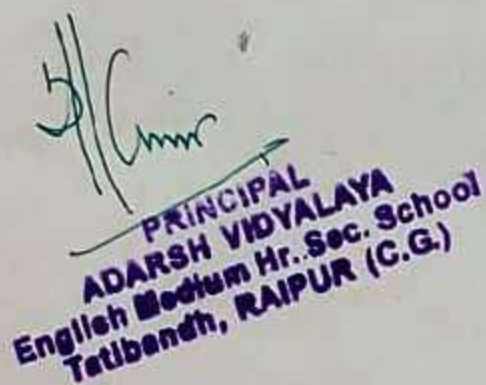 PRINCIPAL
ADARSH VIDYALAYA
English Medium Hr. Sec. School
Tatibandh, RAIPUR (C.G.)